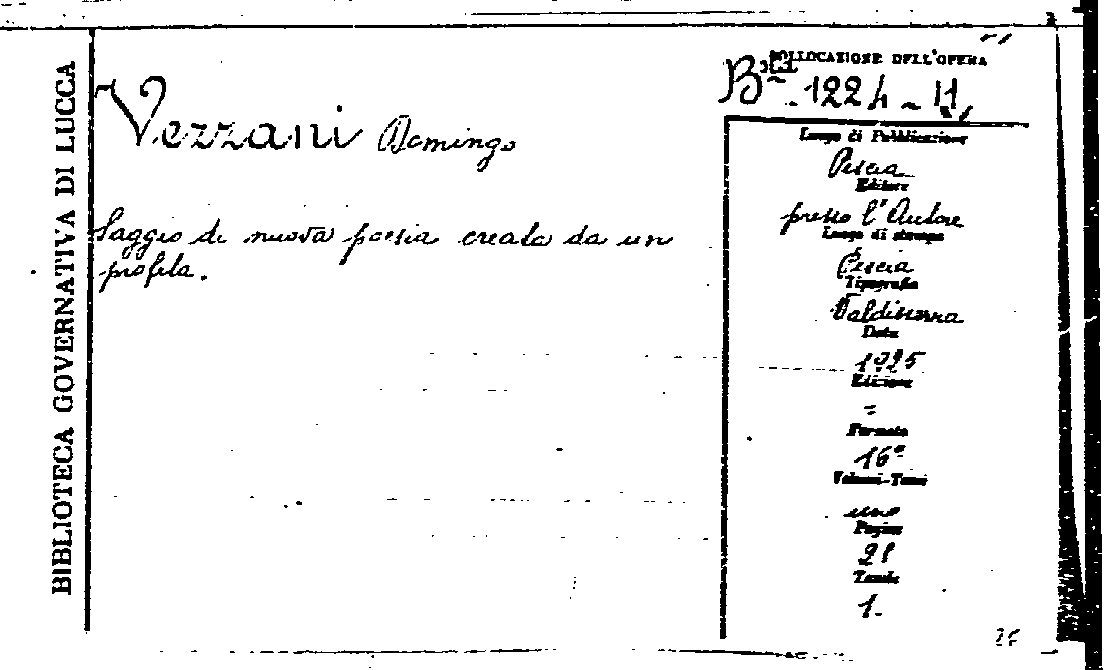 BIBLIOTECA GOVERNATIVA DI LUCCA
Vezzani Domingo
Saggio di nuova poesia creata da un
profeta.
COLLOCAZIONE DELL'OPERA
1224 - 11
Luogo di Pubblicazione
Pescia
Editore
presso l'Autore
Luogo di stampa
Pescia
Tipografia
Valdiserra
Data
1925
Edizione
=
Formato
16°
Volumi-Tomi
uno
Pagine
21
Tavole
1.